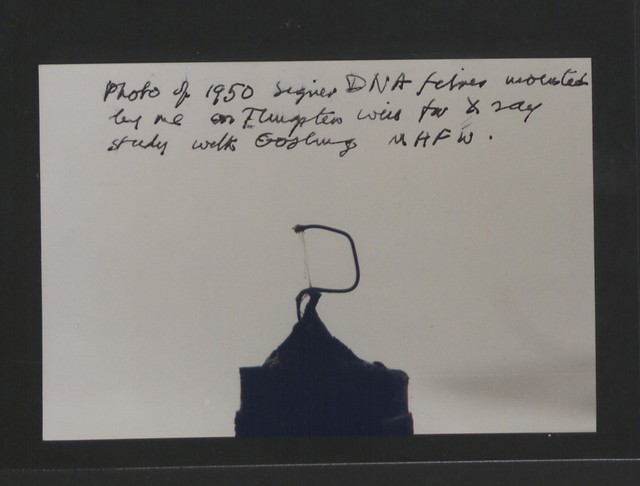 Photo of 1950 Signer DNA fibres mounted
by me on Tungsten wire for X ray
study with Gosling MHFW.